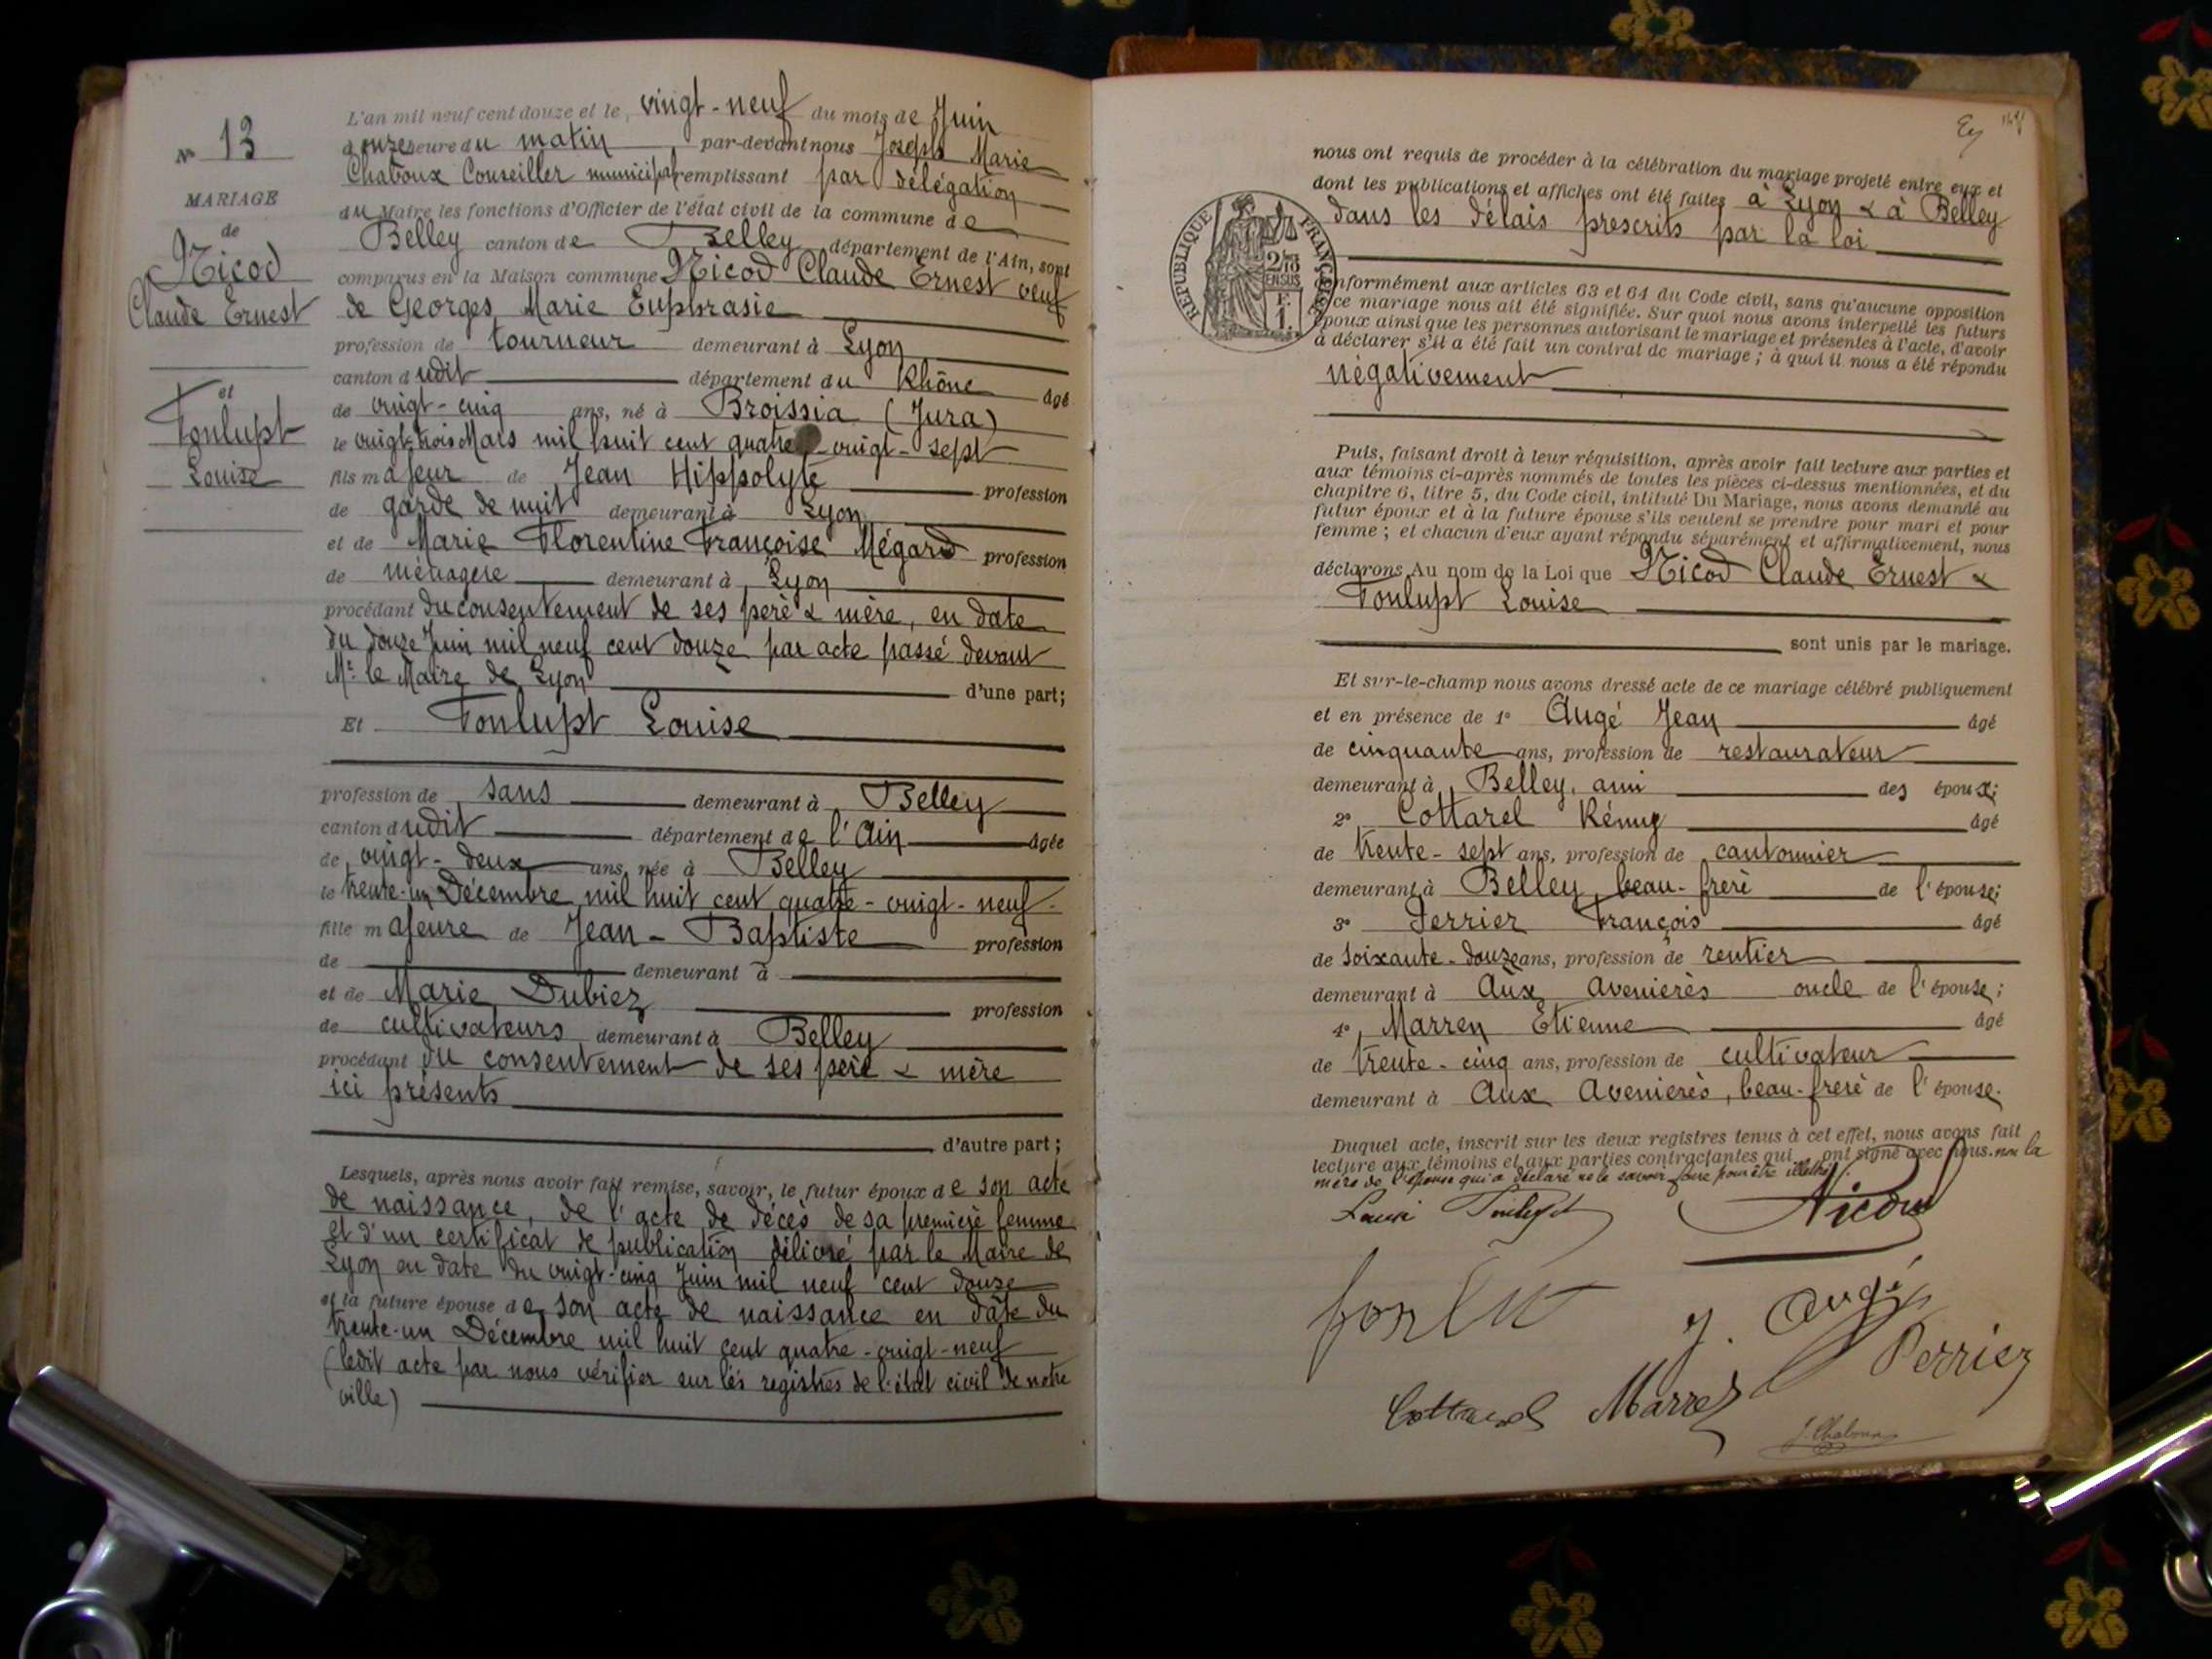 N° 13
MARIAGE
de
Nicod
Claude Ernest
et
Fonlupt
Louise
L'an mil neuf cent douze et le vingt-neuf du mois de Juin
à onze heure du matin par-devant nous Joseph Marie
Chaboux Conseiller municipal remplissant par délégation
du Maire les fonctions d'Officier de l'état civil de la commune de
Belley canton de Belley département de l'Ain, sont
comparus en la Maison commune Nicod Claude Ernest veuf
de Georges Marie Euphrasie
profession de tourneur demeurant à Lyon
canton dudit département du Rhône âgé
de vingt-cinq ans, né à Broissia (Jura)
le vingt-trois Mars mil huit cent quatre-vingt-sept
fils majeur de Jean Hippolyte profession
de garde de nuit demeurant à Lyon
et de Marie Florentine Françoise Mégard profession
de ménagère demeurant à Lyon
procédant du consentement de ses père & mère, en date
du douze Juin mil neuf cent douze par acte passé devant
Mr le Maire de Lyon d'une part;
Et Fonlupt Louise
profession de sans demeurant à Belley
canton dudit département de l'Ain âgée
de vingt-deux ans, née à Belley
le trente-un Décembre mil huit cent quatre-vingt-neuf
fille majeure de Jean-Baptiste profession
de demeurant à
et de Marie Dubiez profession
de cultivateurs demeurant à Belley
procédant du consentement de ses père & mère
ici présents
d'autre part;
Lesquels, après nous avoir fait remise, savoir, le futur époux de son acte
de naissance, de l'acte de décès de sa première femme
et d'un certificat de publication délivré par le Maire de
Lyon en date du vingt-cinq Juin mil neuf cent douze
et la future épouse de son acte de naissance en date du
trente-un Décembre mil huit cent quatre-vingt-neuf
(ledit acte par nous vérifier sur les registres de l'état civil de notre
ville)
nous ont requis de procéder à la célébration du mariage projeté entre eux et
dont les publications et affiches ont été faites à Lyon & à Belley
dans les délais prescrits par la loi
RÉPUBLIQUE FRANÇAISE
2/10 EN SUS
F. 1.
conformément aux articles 63 et 64 du Code civil, sans qu'aucune opposition
à ce mariage nous ait été signifiée. Sur quoi nous avons interpellé les futurs
époux ainsi que les personnes autorisant le mariage et présentes à l'acte, d'avoir
à déclarer s'il a été fait un contrat de mariage; à quoi il nous a été répondu
négativement
Puis, faisant droit à leur réquisition, après avoir fait lecture aux parties et
aux témoins ci-après nommés de toutes les pièces ci-dessus mentionnées, et du
chapitre 6, titre 5, du Code civil, intitulé Du Mariage, nous avons demandé au
futur époux et à la future épouse s'ils veulent se prendre pour mari et pour
femme; et chacun d'eux ayant répondu séparément et affirmativement, nous
déclarons Au nom de la Loi que Nicod Claude Ernest &
Fonlupt Louise
sont unis par le mariage.
Et sur-le-champ nous avons dressé acte de ce mariage célébré publiquement
et en présence de 1° Augé Jean âgé
de cinquante ans, profession de restaurateur
demeurant à Belley, ami des époux;
2° Cottarel Rémy âgé
de trente-sept ans, profession de cantonnier
demeurant à Belley, beau-frère de l'épouse;
3° Perrier François âgé
de soixante-douze ans, profession de rentier
demeurant à Aux Avenières oncle de l'épouse;
4° Marrey Etienne âgé
de trente-cinq ans, profession de cultivateur
demeurant à Aux Avenières, beau-frère de l'épouse.
Duquel acte, inscrit sur les deux registres tenus à cet effet, nous avons fait
lecture aux témoins et aux parties contractantes qui ont signé avec nous. non la
mère de l'épouse qui a déclaré ne le savoir faire pour être illettrée
Louise Fonlupt Nicod
J. Augé
Perrier
Cottarel Marrey
J. Chaboux